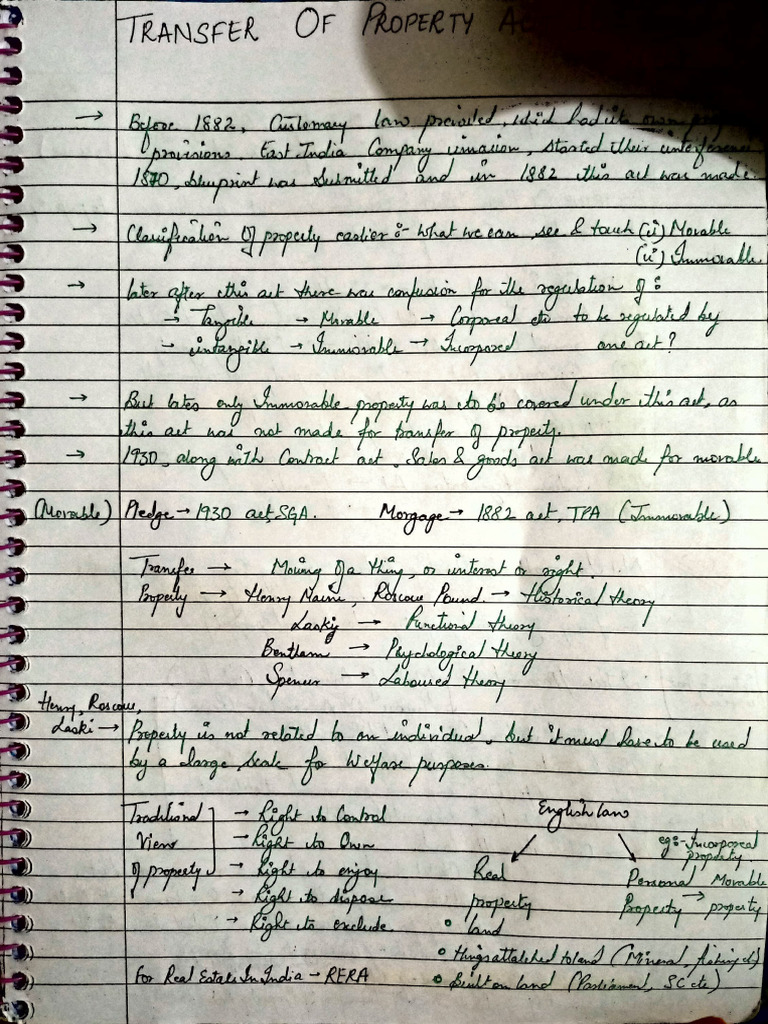 TRANSFER OF PROPERTY A
→ Before 1882, Customary law prevailed, which had its own
provisions. East India Company invasion, started their interference
1870, blueprint was submitted and in 1882 this act was made.
→ Classification of property earlier :- what we can see & touch (i) Movable
(ii) Immovable
→ later after this act there was confusion for the regulation of :
→ Tangible → Movable → Corporeal etc to be regulated by
→ intangible → Immovable → Incorporeal one act?
→ But later only Immovable property was to be covered under this act, as
this act was not made for transfer of property.
→ 1930, along with Contract act, Sales & goods act was made for movable
(Movable) Pledge → 1930 act, SGA. Morgage → 1882 act, TPA (Immovable)
Transfer → Moving of a thing, or interest or right.
Property → Henry Maine, Roscow Pound → Historical theory
Laski → Functional theory
Bentham → Psychological theory
Spencer → Laboured theory
Henry, Roscow,
Laski → Property is not related to an individual, but it must have to be used
by a large scale for Welfare purposes.
Traditional → Right to Control English law
View → Right to Own eg:- Incorporeal property
of property → Right to enjoy Real Personal Movable
→ Right to dispose property Property → property
→ Right to exclude. • land
• things attatched to land (Mineral,
For Real Estate In India - RERA • Built on land (Parliament, SC etc)